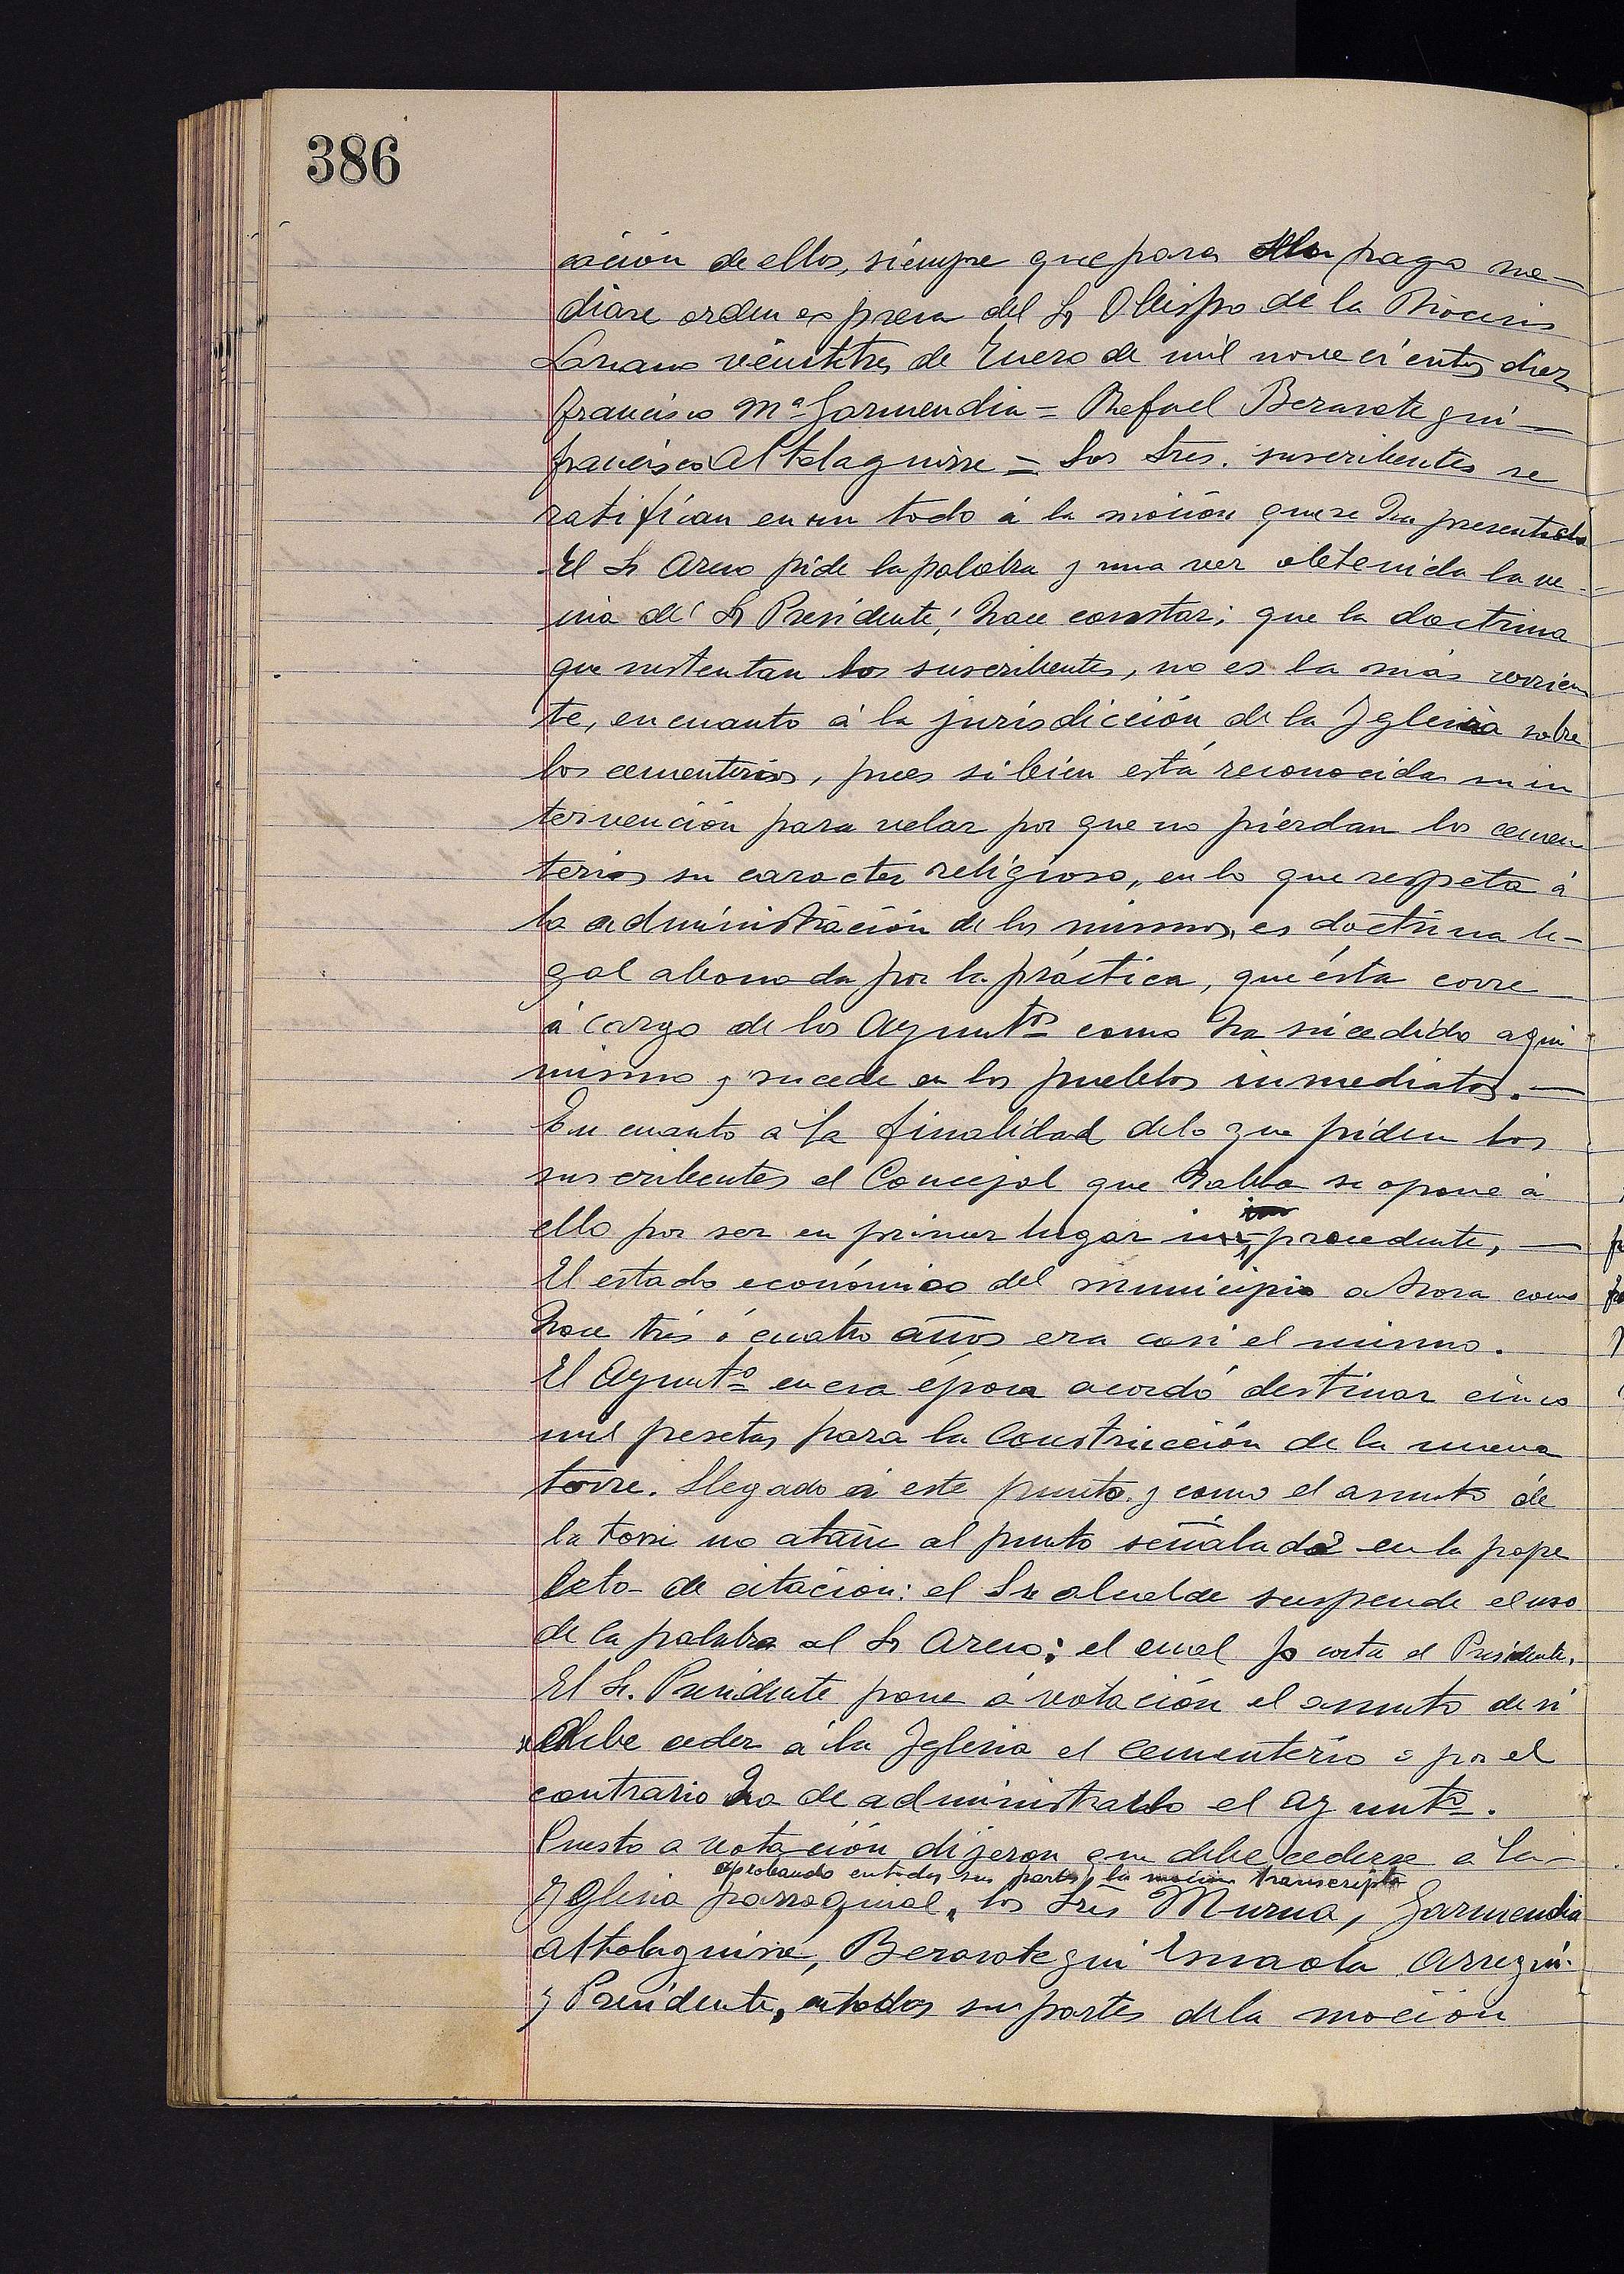 386
cación de ellos, siempre que para ello haga me-
diare orden expresa del Sr Obispo de la Diócesis
Lazcano veintitres de Enero de mil novecientos diez
Francisco Mª Garmendia = Rafael Berasategui —
Francisco Altolaguirre = Los Sres. suscribentes se
ratifican en un todo á la moción que se ha presentado
El Sr Areso pide la palabra y una vez obtenida la ve-
nia del Sr Presidente, hace constar; que la doctrina
que sustentan los suscribentes, no es la más corrien
te, en cuanto á la jurisdicción de la Iglesia sobre
los cementerios, pues si bien está reconocida su in
tervención para velar por que no pierdan los cemen
terios su caracter religioso, en lo que respeta á
la administración de los mismos, es doctrina le-
gal abonada por la práctica, que ésta corre
á cargo de los Ayuntos como ha sucedido aqui
mismo y sucede en los pueblos inmediatos. —
En cuanto á la finalidad de lo que piden los
suscribentes el Concejal que habla se opone á
ello por ser en primer lugar improcedente, —
El estado económico del municipio ahora como
hace tres ó cuatro años era casi el mismo.
El Ayuntº en esa época acordó destinar cinco
mil pesetas para la construcción de la nueva
torre. Llegado á este punto y como el asunto de
la torre no atañe al punto señalado en la pape
leta de citación: el Sr alcalde suspende el uso
de la palabra al Sr Areso; el cual lo corta el Presidente.
El Sr. Presidente pone á votación el asunto de si
se debe ceder á la Iglesia el cementerio o por el
contrario ha de administrarlo el ayuntº.
Puesto a votación dijeron que debe cederse a la
aprobando en todas sus partes la moción transcripta
Yglesia parroquial, los Sres Murua, Garmendia
Altolaguirre, Berasategui Esnaola Arregui
y Presidente, en todas sus partes de la moción